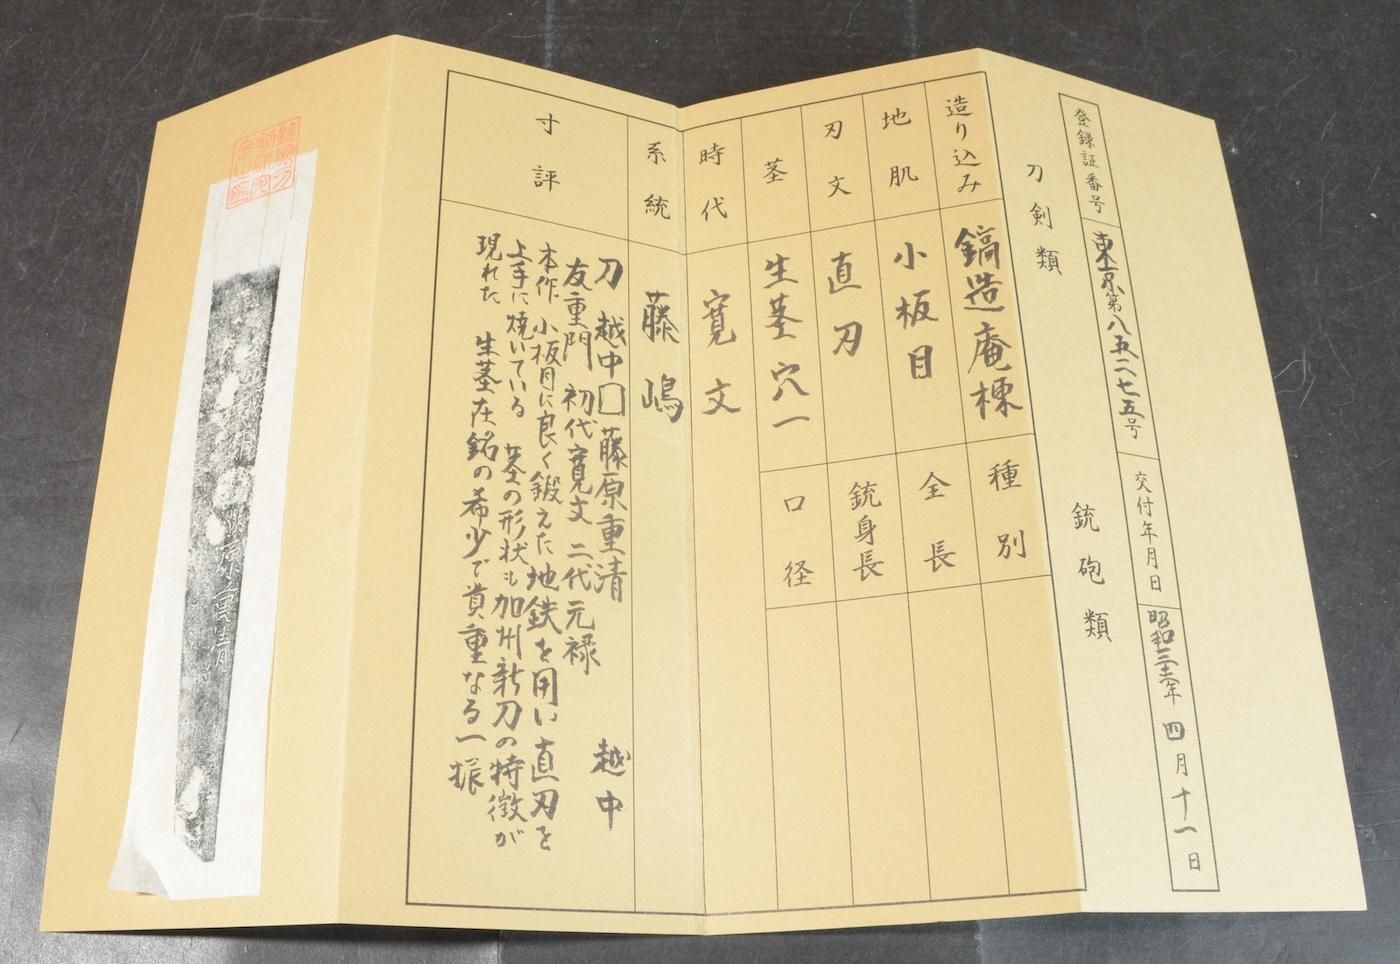 登録証番号 東京第八五二七五号 交付年月日 昭和三十二年 四月十一日
刀剣類 銃砲類
造り込み 鎬造庵棟 種別
地肌 小板目 全長
刃文 直刃 銃身長
茎 生茎 穴一 口径
時代 寛文
系統 藤嶋
寸評
刀 越中□藤原重清 越中
友重門 初代寛文 二代元禄
本作 小板目に良く鍛えた地鉄を用い直刃を
上手に焼いている 茎の形状も加州新刀の特徴が
現れた 生茎在銘の希少で貴重なる一振